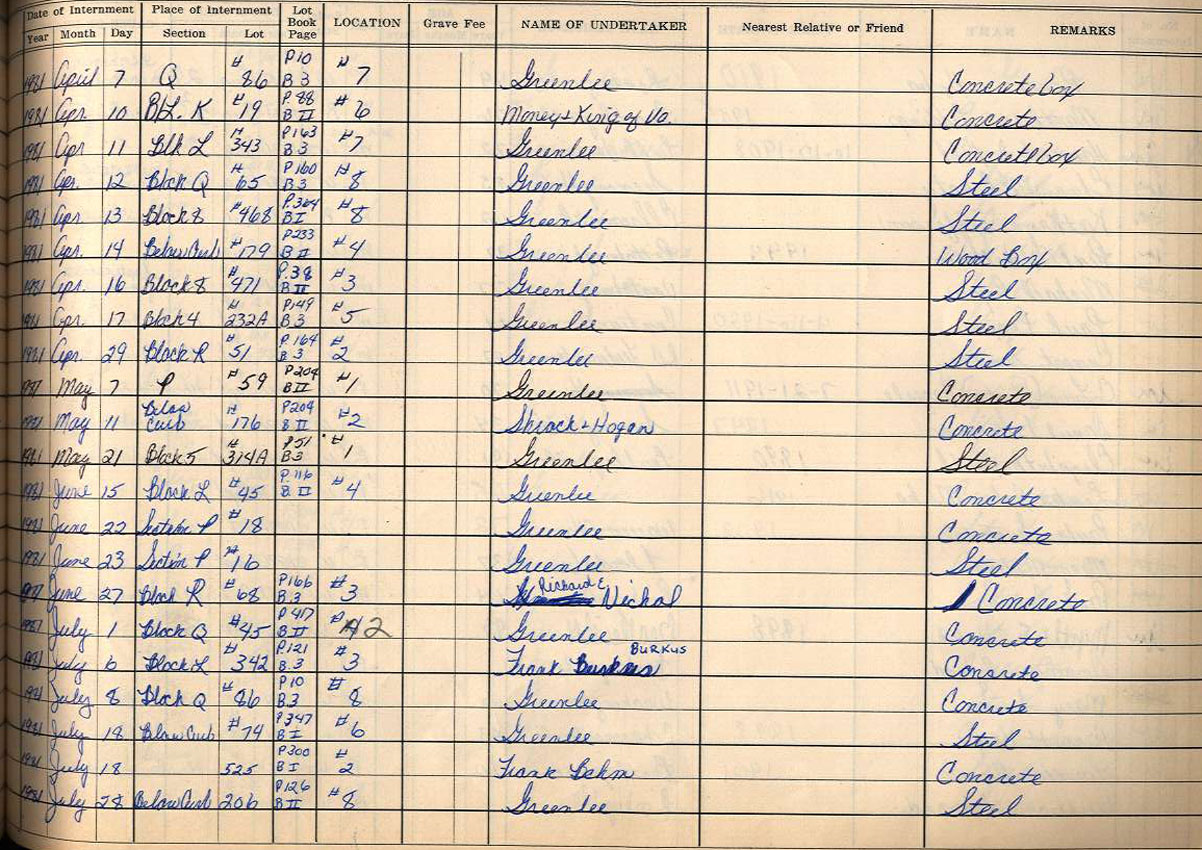 Date of Internment Place of Internment Lot Book Page LOCATION Grave Fee NAME OF UNDERTAKER Nearest Relative or Friend REMARKS
Year Month Day Section Lot
1981 April 7 Q #86 P10 B3 #7 Greenlee Concrete box
1981 Apr. 10 BL. K #19 P.88 B II #6 Money + King of Va. Concrete
1981 Apr 11 Blk L #343 P163 B3 #7 Greenlee Concrete box
1981 Apr. 12 Block Q #65 P160 B3 #8 Greenlee Steel
1981 Apr. 13 Block 8 #468 P.364 B I #8 Greenlee Steel
1981 Apr. 14 Below Curb #179 P233 B II #4 Greenlee Wood Box
1981 Apr. 16 Block 8 #471 P.38 B II #3 Greenlee Steel
1981 Apr. 17 Block 4 #232A P149 B3 #5 Greenlee Steel
1981 Apr. 29 Block R #51 P.164 B3 #2 Greenlee Steel
1981 May 7 P #59 P204 B II #1 Greenlee Concrete
1981 May 11 Below Curb #176 P204 B II #2 Shrock + Hogan Concrete
1981 May 21 Block 5 #314A P51 B3 #1 Greenlee Steel
1981 June 15 Block L #45 P.116 B II #4 Greenlee Concrete
1981 June 22 Section P #18 Greenlee Concrete
1981 June 23 Section P #16 Greenlee Steel
1981 June 27 Block R #68 P166 B.3 #3 Richard E Nichol Concrete
1981 July 1 Block Q #45 P417 B II #42 Greenlee Concrete
1981 July 6 Block L #342 P.121 B.3 #3 Frank Burkus BURKUS Concrete
1981 July 8 Block Q #86 P10 B.3 #8 Greenlee Concrete
1981 July 18 Below Curb #74 P347 B I #6 Greenlee Steel
1981 July 18 525 P300 B I #2 Frank Behm Concrete
1981 July 28 Below Curb 206 P126 B II #8 Greenlee Steel